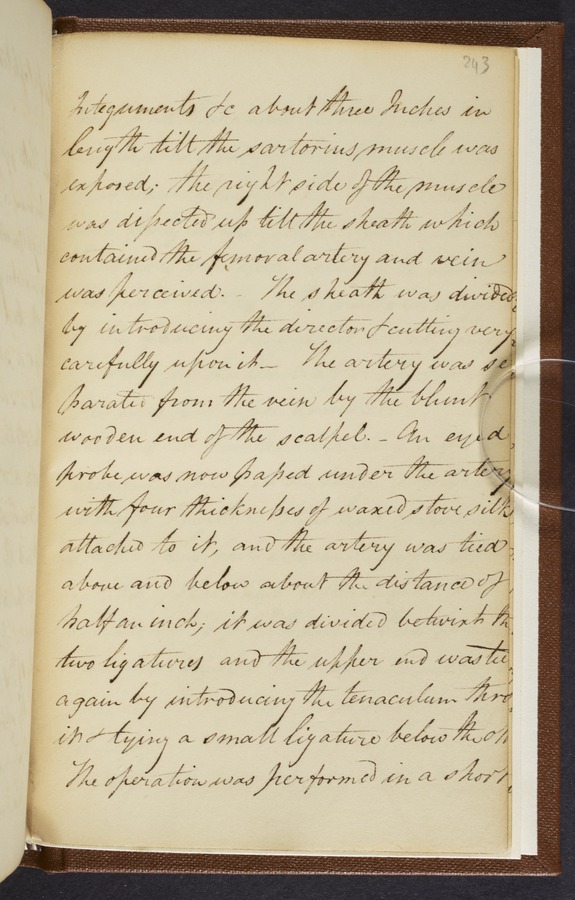 243
Integuments &c about three Inches in
length till the sartorius muscle was
exposed; the right side of the muscle
was dissected up till the sheath which
contained the femoral artery and vein
was perceived. - The sheath was divided
by introducing the director & cutting very
carefully upon it - The artery was se
parated from the vein by the blunt
wooden end of the scalpel. - An eyed
probe was now passed under the artery
with four thicknesses of waxed stove silk
attached to it, and the artery was tied
above and below about the distance of
half an inch; it was divided betwixt th
two ligatures and the upper end was tie
again by introducing the tenaculum thro
it & tying a small ligature below the
The operation was performed in a short